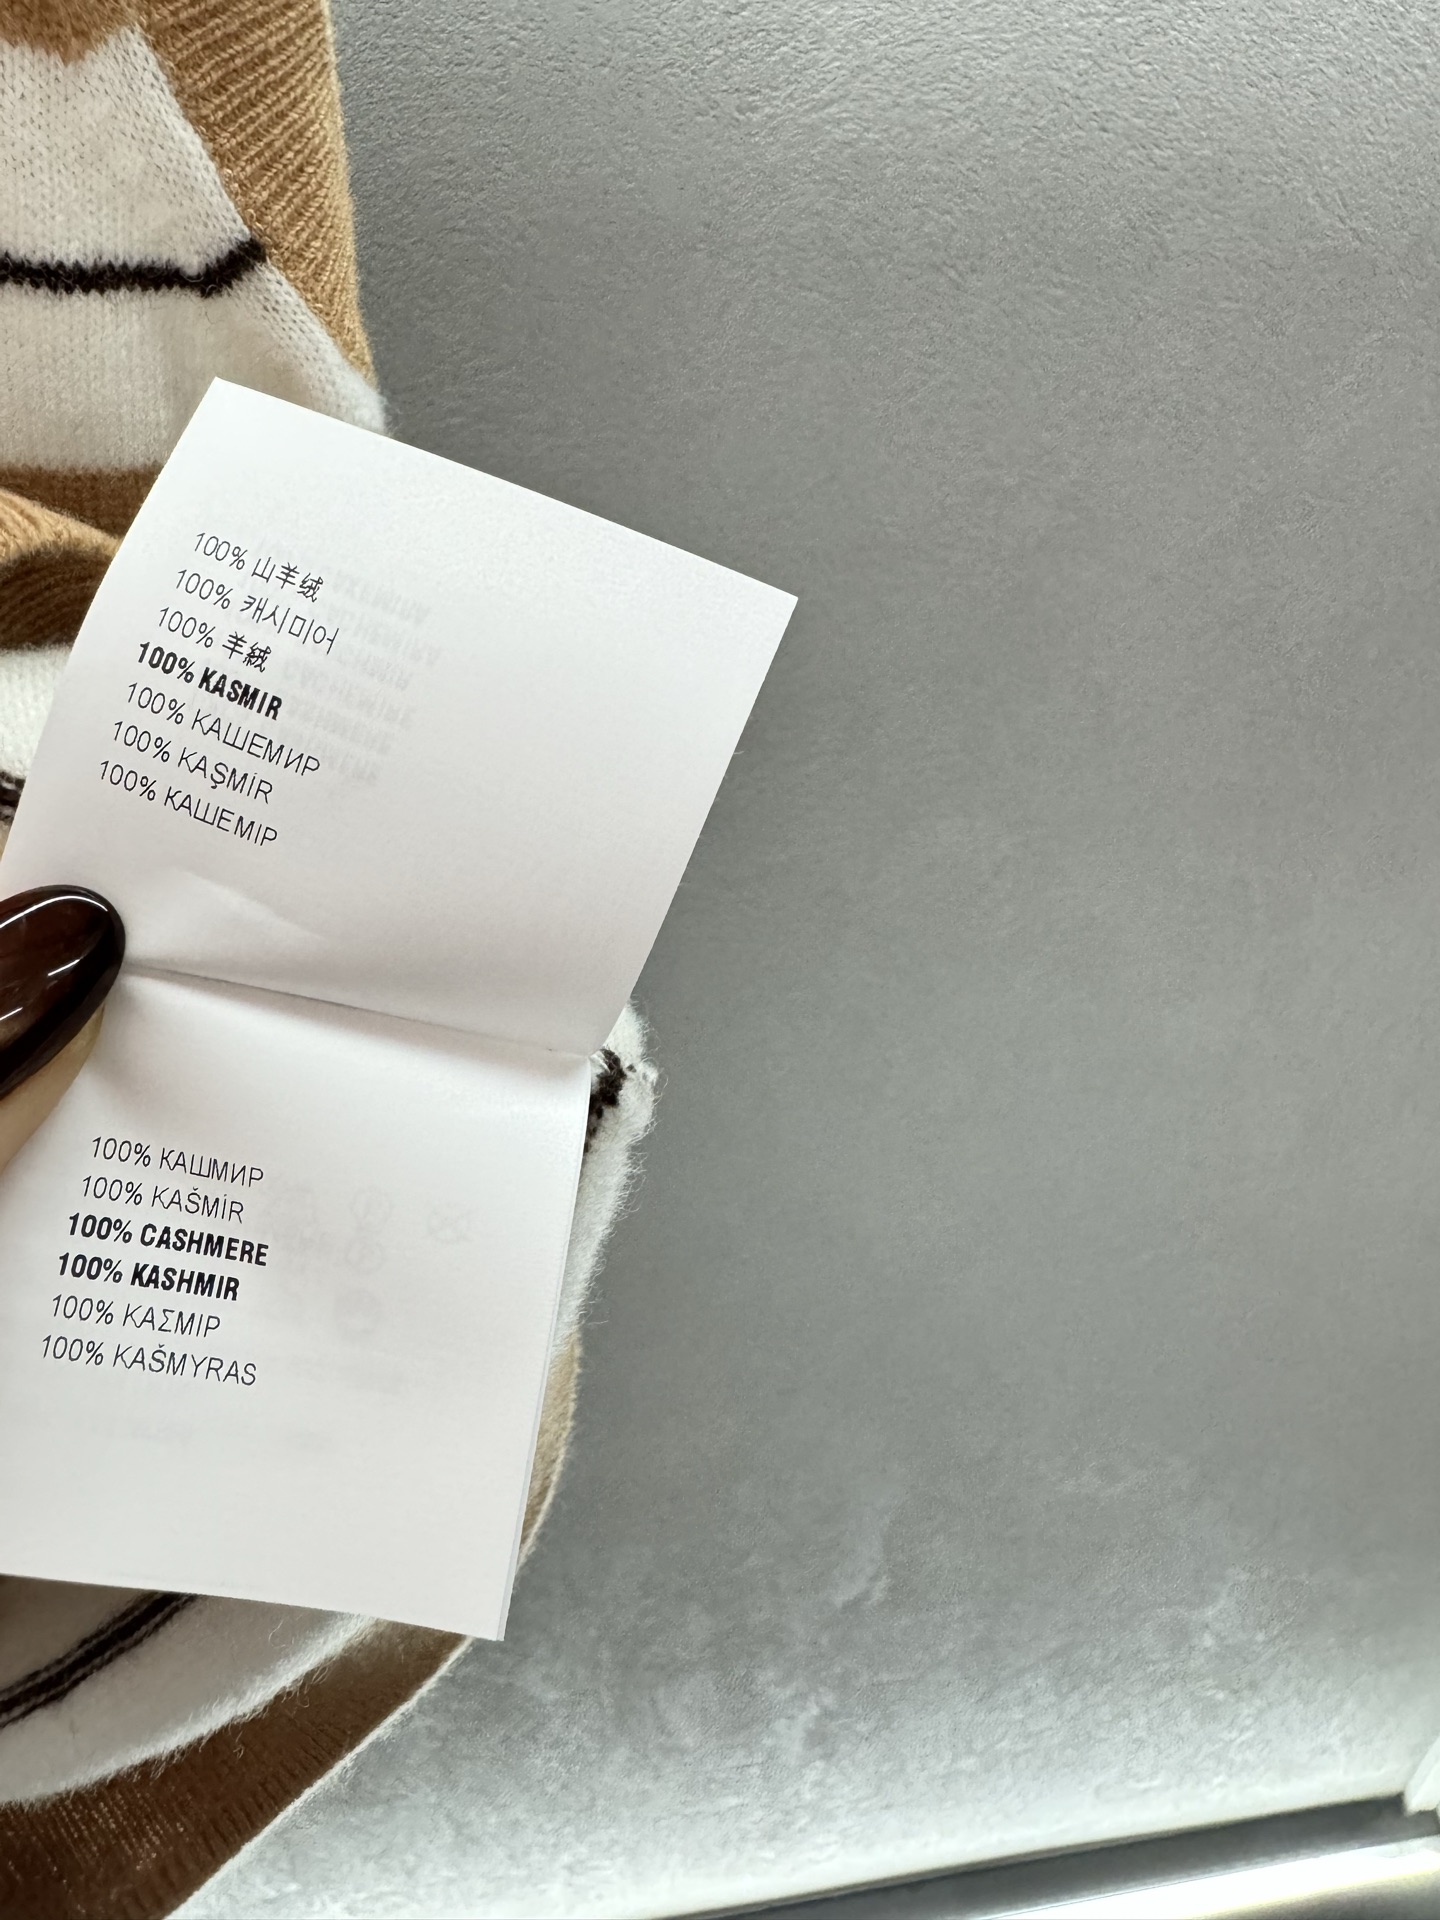 100% 山羊绒
100% 캐시미어
100% 羊絨
100% KASMIR
100% КАШЕМИР
100% KAŞMİR
100% КАШЕМІР
100% КАШМИР
100% KAŠMÍR
100% CASHMERE
100% KASHMIR
100% ΚΑΣΜΙΡ
100% KAŠMYRAS